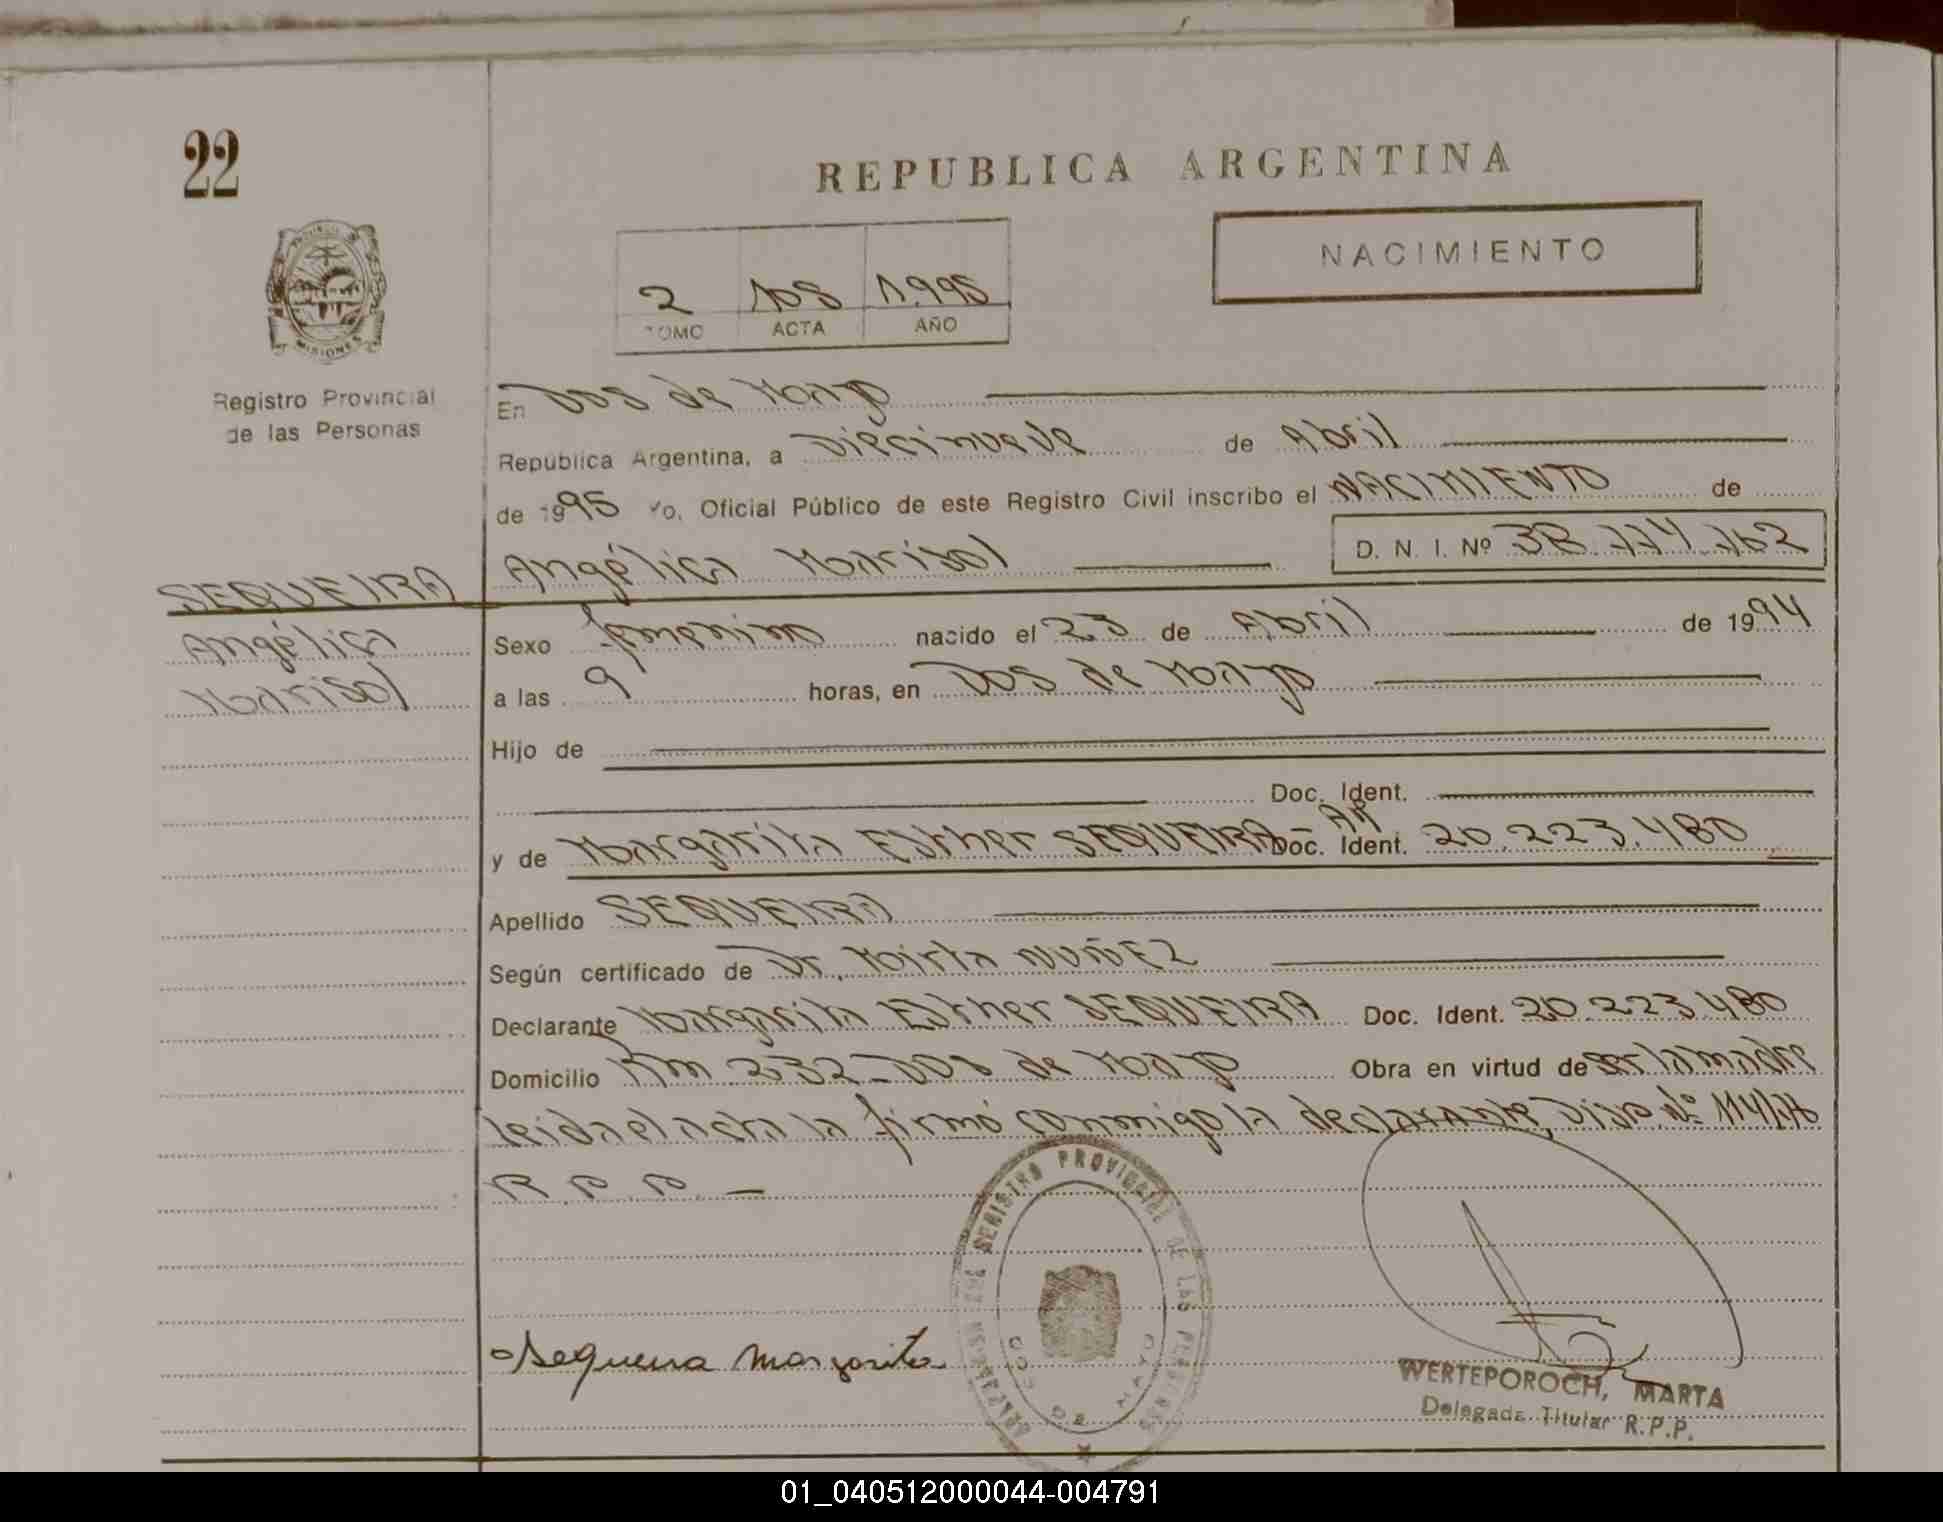 22
REPUBLICA ARGENTINA
NACIMIENTO
2 108 1.995
TOMO ACTA AÑO
MISIONES
Registro Provincial
de las Personas
En Dos de Mayo
República Argentina, a Diecinueve de Abril
de 1995 Yo, Oficial Público de este Registro Civil inscribo el NACIMIENTO de
Angélica Marisol D. N. I. Nº
SEQUEIRA
Angélica
Marisol
Sexo femenino nacido el 23 de Abril de 1994
a las 9 horas, en Dos de Mayo
Hijo de
Doc. Ident.
y de Margarita Esther SEQUEIRA - AR Doc. Ident. 20.223.480
Apellido SEQUEIRA
Según certificado de Dr. Mirta NUÑEZ
Declarante Margarita Esther SEQUEIRA Doc. Ident. 20.223.480
Domicilio Km 232 - Dos de Mayo Obra en virtud de ser la madre
leida el acta la firmó conmigo la declarante, Disp. Nº
R.P.P. —
REGISTRO PROVINCIAL DE LAS PERSONAS
DOS DE MAYO
Sequeira Margarita
WERTEPOROCH, MARTA
Delegada Titular R.P.P.
01_040512000044-004791